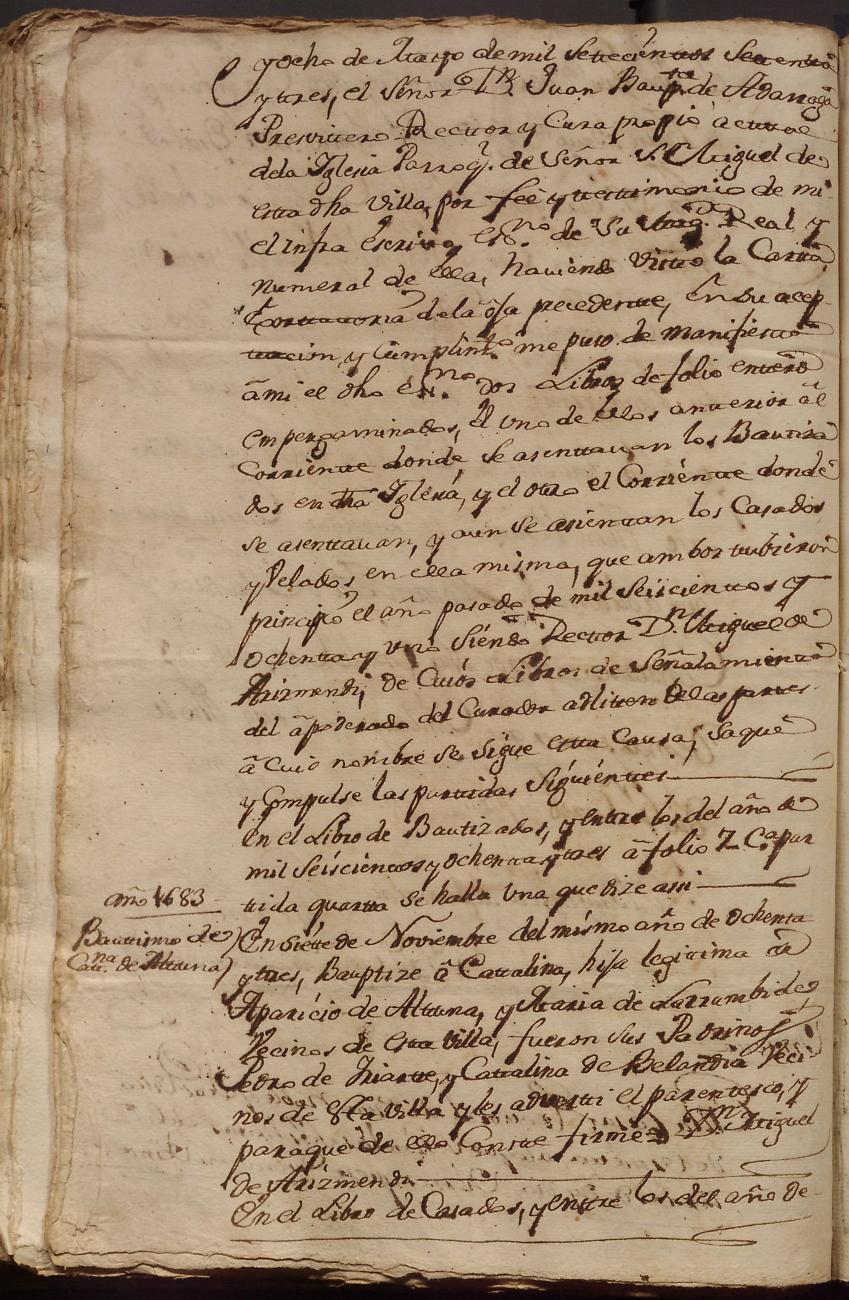 y ocho de Mayo de mil settecienttos settentta
y tres, el Señor Dn. Juan Baupta. de Adarraga
Presvittero Recttor y Cura propio acttual
dela Iglesia Parroql. de Señor Sn. Miguel de
estta dha Villa, por feé y testtimonio de mi
el infra escrivo, Esno. de Su Magd. Real, y
Numeral de ella, haviendo Vistto la Cartta
de la oja precedentte, en su acep-
ttacion, y Cumplimtto. me puso de manifiestto
â mi el dho esno. dos Libros de folio enttero
empergaminados, el uno de ellos antterior âl
Corrientte donde se asenttavan los Bautiza
dos en dha Iglesia, y el ottro el Corrientte donde
se asenttavan, y aun se asienttan los Casados
y Velados en ella misma, que ambos ttubieron
principio el año pasado de mil seiscienttos y
ochentta y uno siendo Recttor Dn. Miguel de
Arizmendi, de Cuios Libros de Señalamientto
del âpoderado del Curador adlittem de las parttes
â Cuio nombre se sigue estta Causa, saquê
y Compulse las parttidas siguienttes
En el Libro de Bautizados, y enttre los del año de
mil seiscienttos y ochentta y ttres â folio 7 par
ttida quartta se halla una que dize assi
año 1683
Bauttismo de
Catna. de Alttuna
En siette de Noviembre del mismo año de ochentta
y ttres, Bauptize â Cattalina, hija legitima de
Aparicio de Alttuna, y Maria de Larrumbide,
Vecinos de estta Villa, fueron sus Padrinos
Pedro de Iriartte, y Cattalina de Velandia Veci-
nos de estta Villa y les advertti el parenttesco, y
para que de ello Constte firmé Dn. Miguel
de Arizmendi
En el Libro de Casados, y enttre los del año de